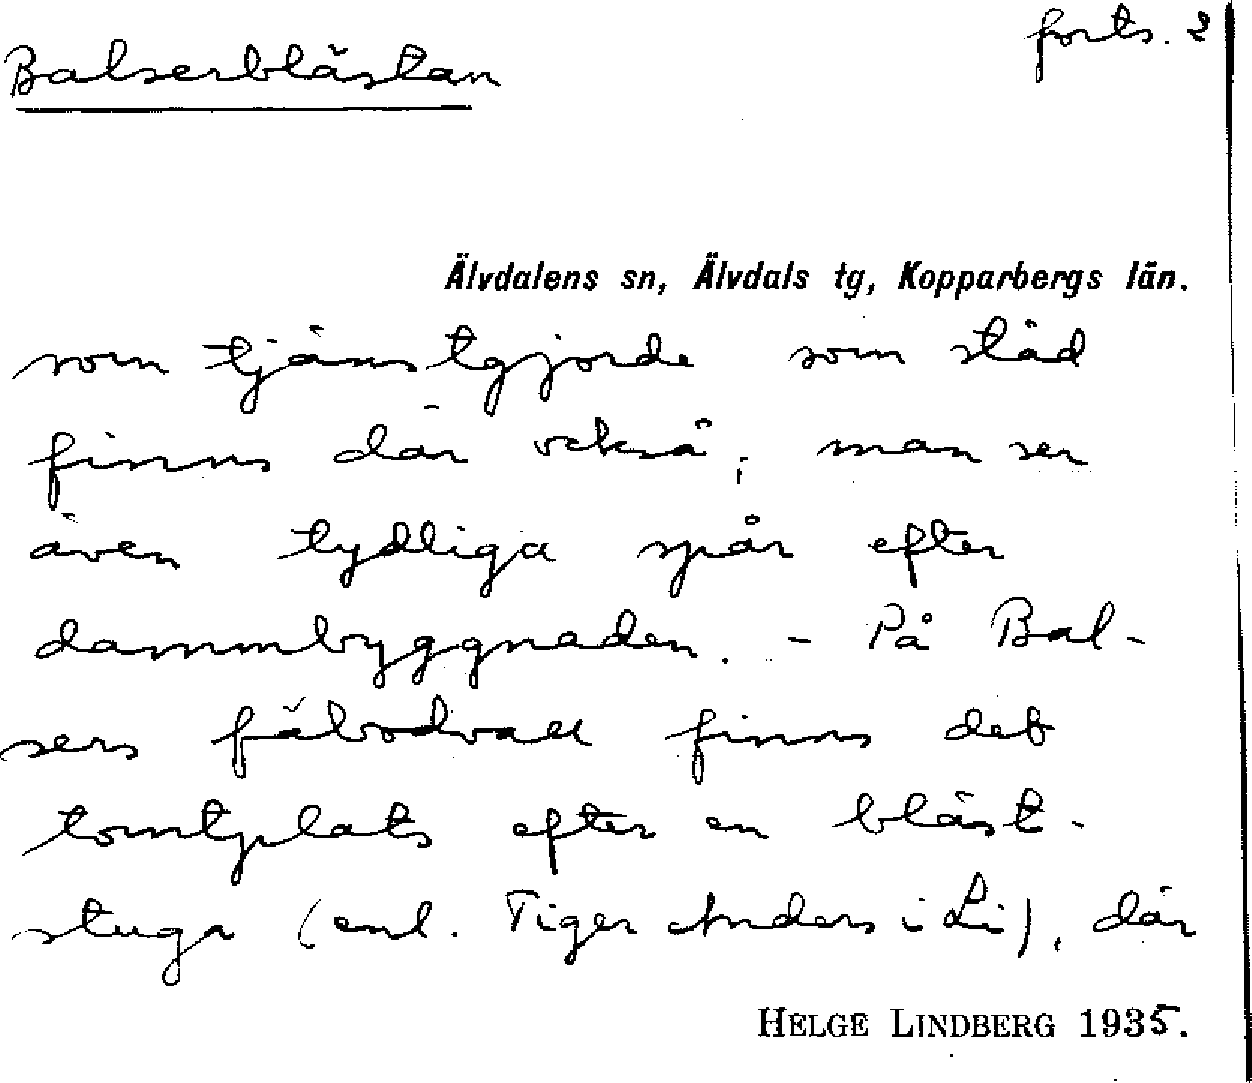 Balserblästan
forts. 2
Älvdalens sn, Älvdals tg, Kopparbergs län.
som tjänstgjorde som städ
finns där också; man ser
även tydliga spår efter
dammbyggnaden. - På Bal-
sers fäbodvall finns det
tomtplats efter en bläst-
stuga (enl. Tiger Anders i Li), där
HELGE LINDBERG 1935.